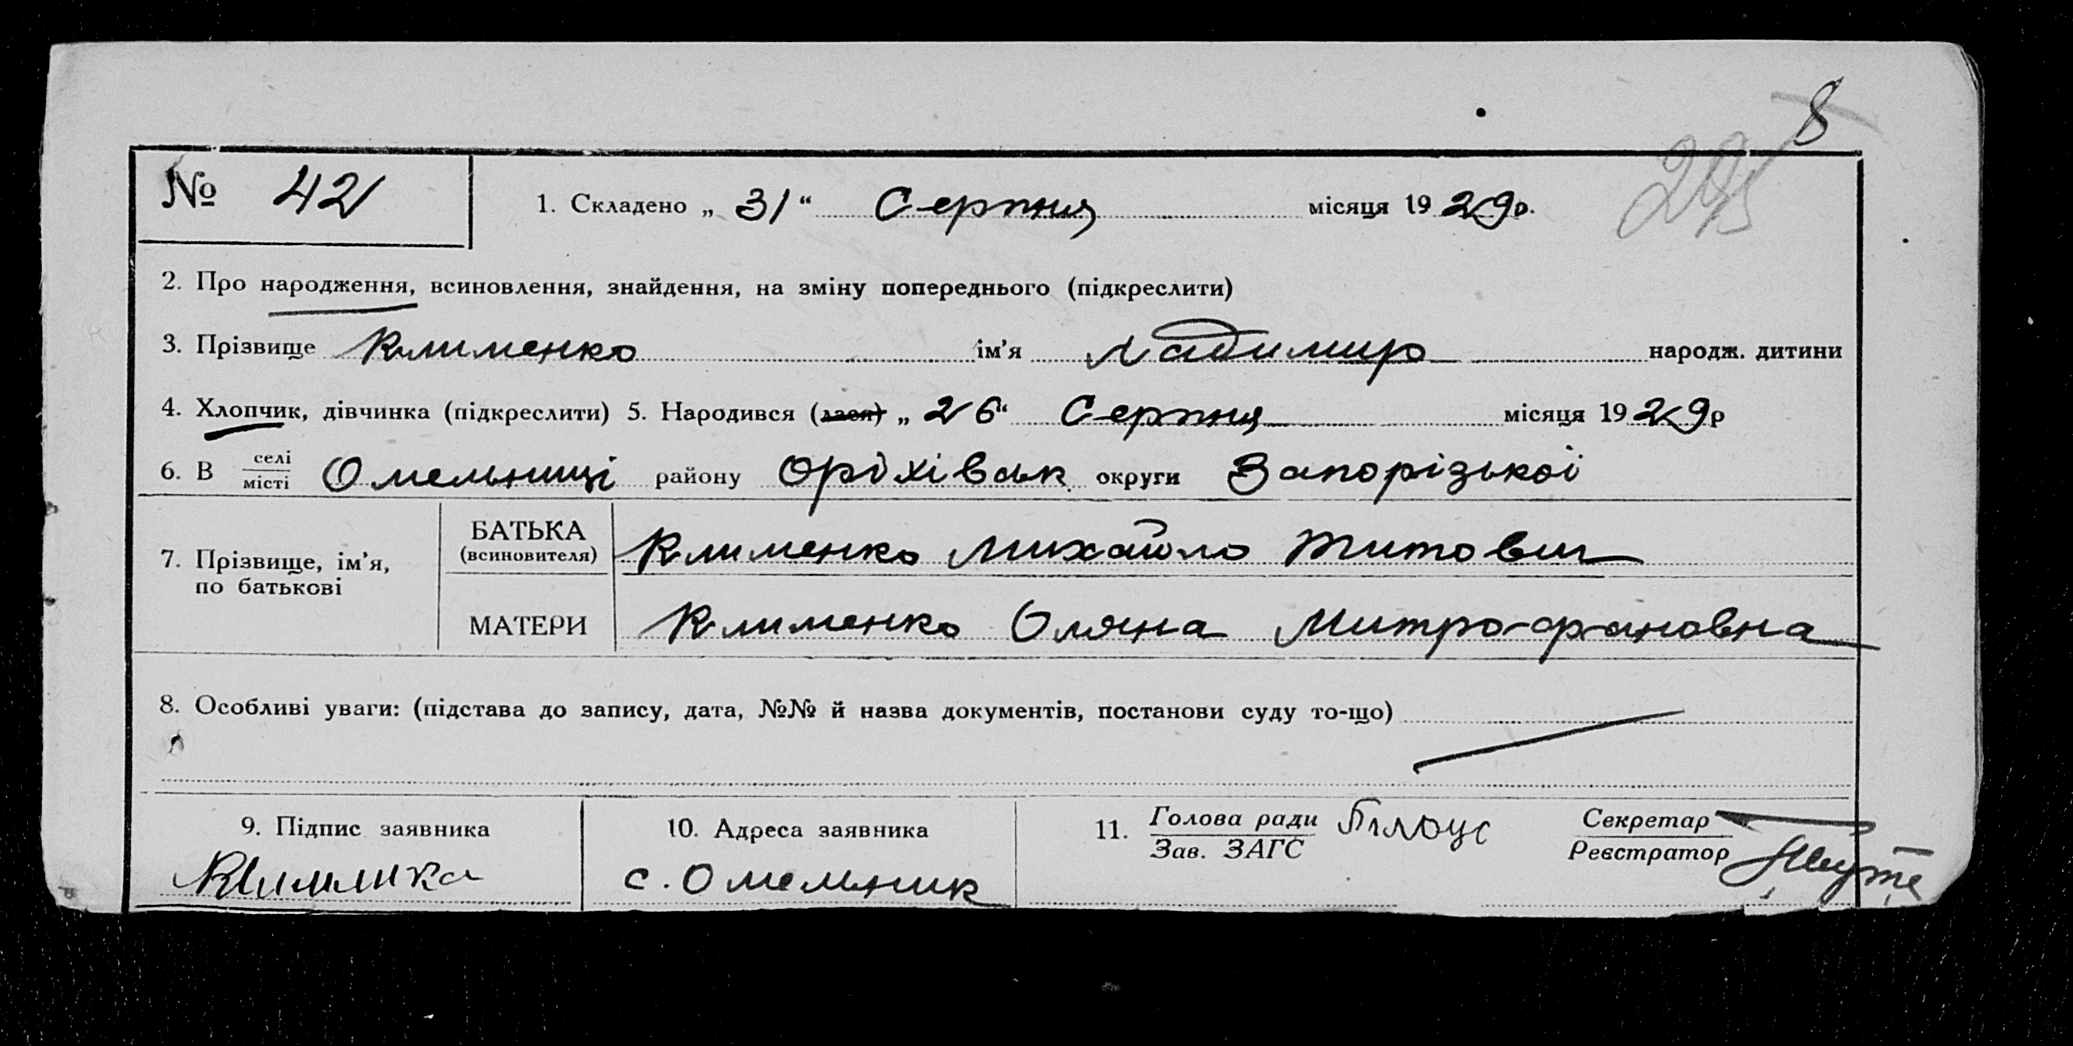 8
295
№ 42 1. Складено „ 31 “ Серпня місяця 1929 р.
2. Про народження, всиновлення, знайдення, на зміну попереднього (підкреслити)
3. Прізвище Клименко ім’я Ладимир народж. дитини
4. Хлопчик, дівчинка (підкреслити) 5. Народився (лася) „ 26 “ Серпня місяця 1929 р
6. В селі місті Омельниці району Оріхівськ округи Запорізької
7. Прізвище, ім’я, по батькові
БАТЬКА (всиновителя) Клименко Михайло Титович
МАТЕРИ Клименко Оляна Митрофановна
8. Особливі уваги: (підстава до запису, дата, №№ й назва документів, постанови суду то-що)
9. Підпис заявника 10. Адреса заявника 11. Голова ради Білоус Секретар
Зав. ЗАГС Реєстратор
с. Омельник